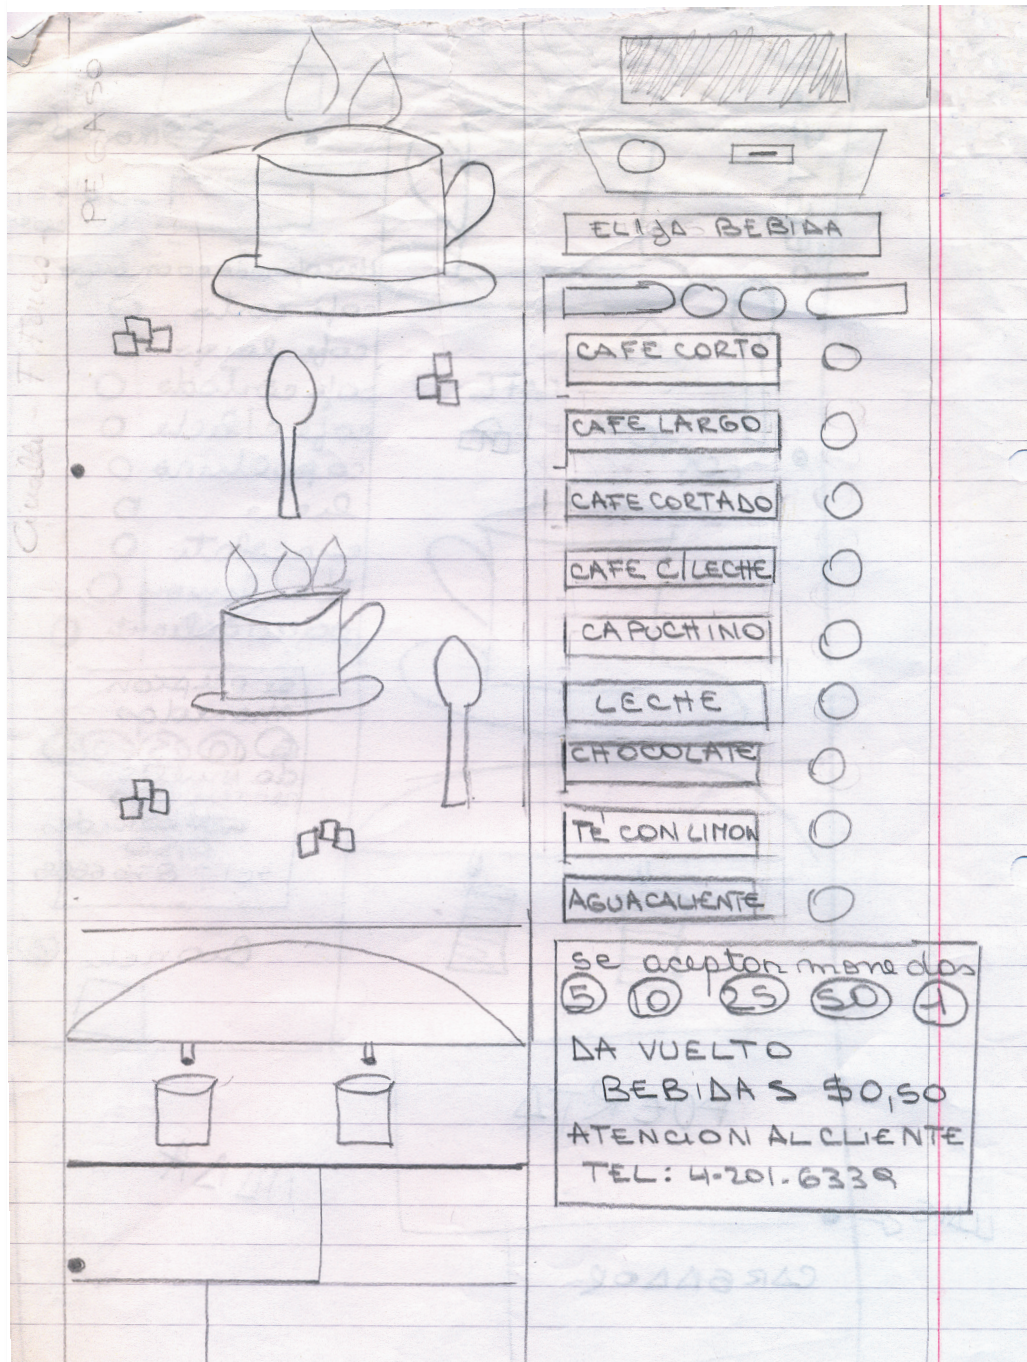 PEGASO
ELIJA BEBIDA
CAFE CORTO
CAFE LARGO
CAFE CORTADO
CAFE C/LECHE
CAPUCHINO
LECHE
CHOCOLATE
TÉ CON LIMON
AGUA CALIENTE
se aceptan monedas
5 10 25 50 1
DA VUELTO
BEBIDAS $0,50
ATENCION AL CLIENTE
TEL: 4-201-6339